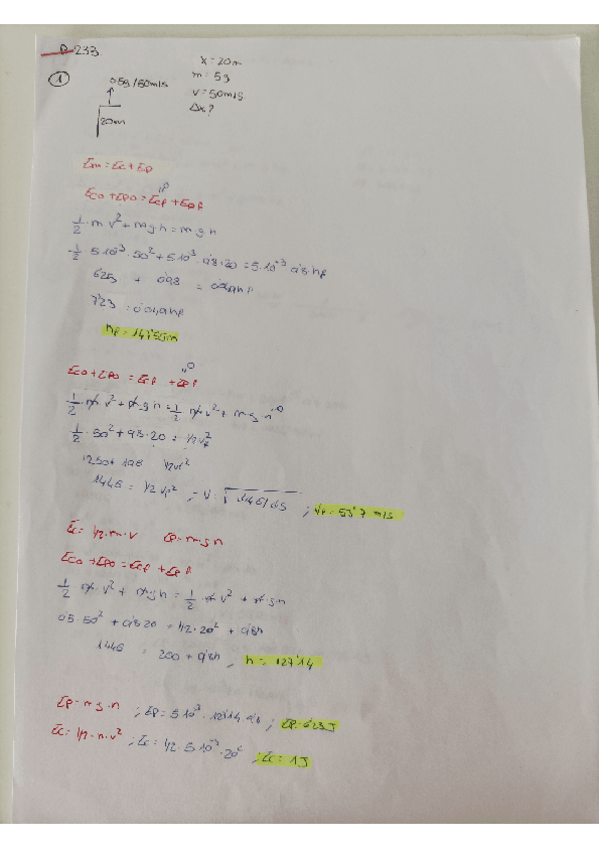 P. 233
x = 20m
m = 5g
v = 50m/s
Δx?
①
05g/50m/s
20m
Em = Ec + Ep
Eco + Epo = Ecf + Epf
0
1/2 · m v² + m g h = m g h
1/2 5·10⁻³ · 50² + 5·10⁻³ · 9'8·20 = 5·10⁻³ 9'8 hf
6'25 + 0'98 = 0'049 hf
7'23 = 0'049 hf
hf = 147'55m
Eco + Epo = Ecf + Epf
0
1/2 · m v² + m g h = 1/2 m v² + m g h 0
1/2 · 50² + 9'8·20 = 1/2 vf²
1250 + 196 1/2 vf²
1446 = 1/2 vf² ; v = √1446/0'5 ; vf = 53'7 m/s
Ec = 1/2 · m · v Ep = m · g · h
Eco + Epo = Ecf + Epf
1/2 m v² + m g h = 1/2 m v² + m g h
0'5 · 50² + 9'8·20 = 1/2 · 20² + 9'8h
1446 = 200 + 9'8h , h = 127'14
Ep = m · g · h ; Ep = 5·10⁻³ · 127'14 9'8 ; Ep = 6'23J
Ec = 1/2 · m · v² ; Ec = 1/2 · 5·10⁻³ · 20² ; Ec = 1J